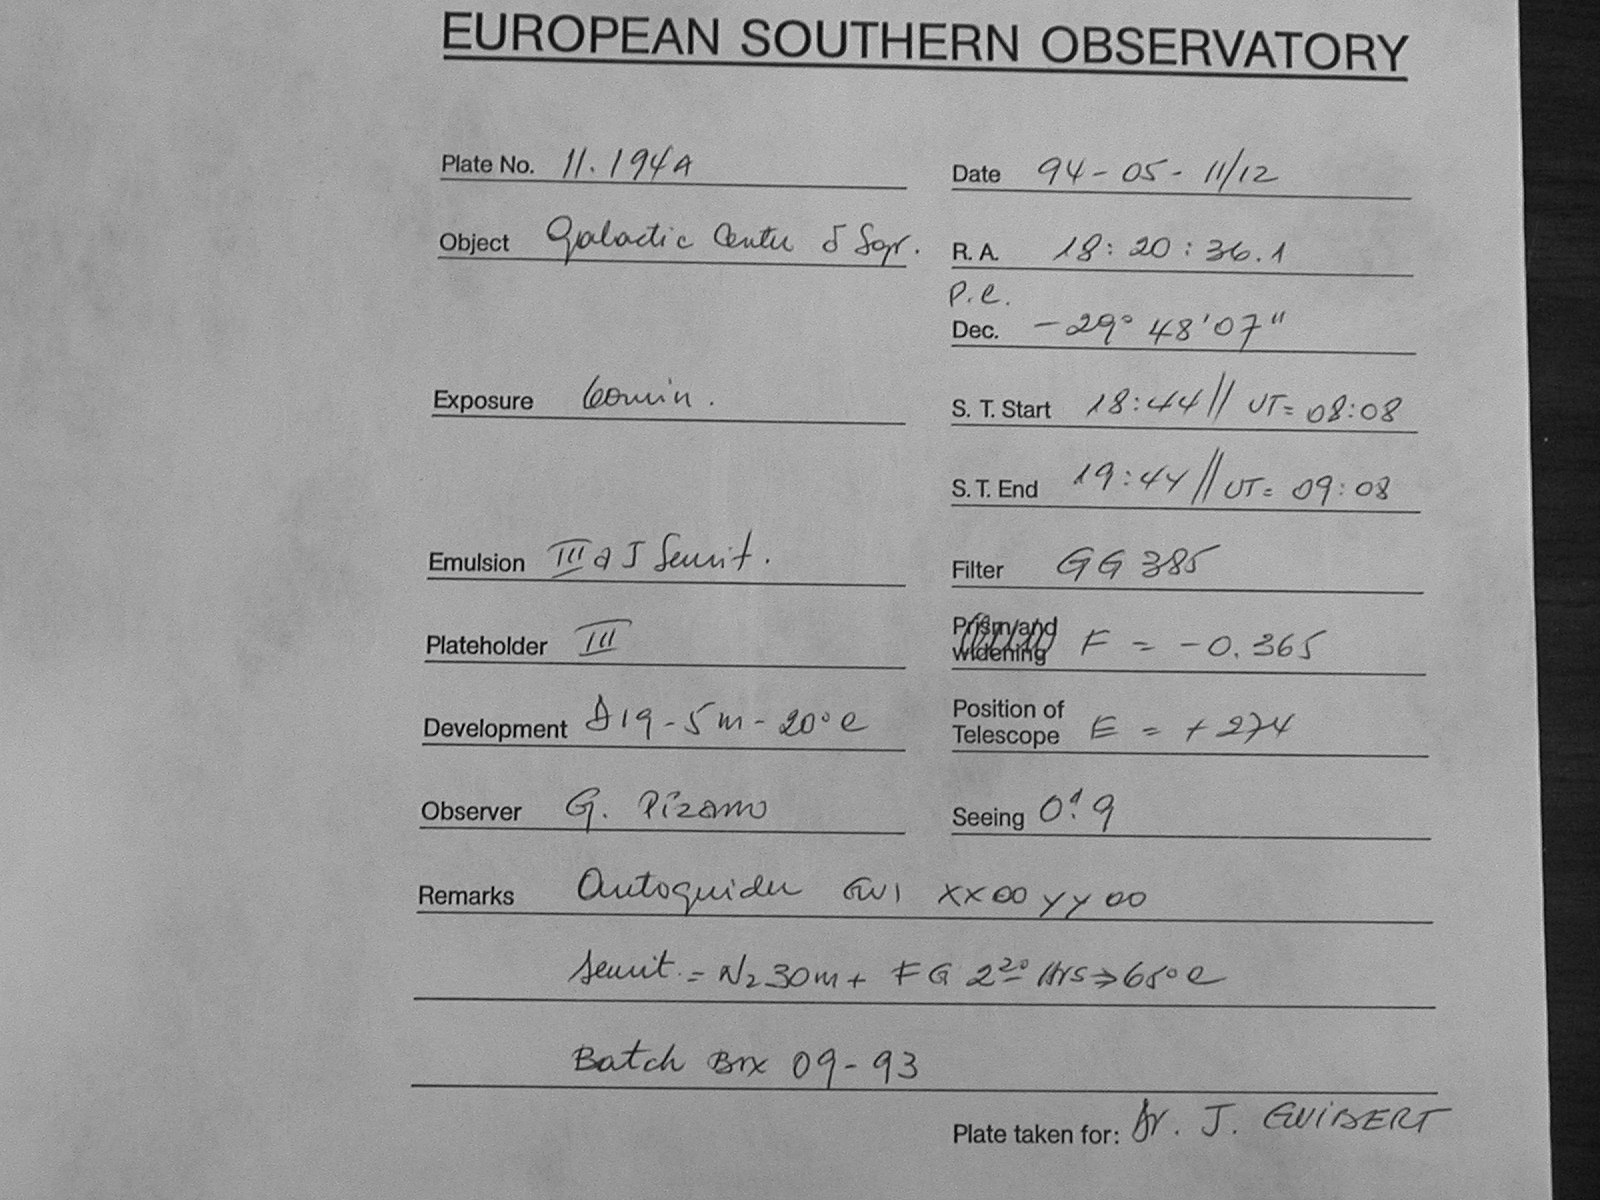 EUROPEAN SOUTHERN OBSERVATORY
Plate No. 11.194A
Date 94-05-11/12
Object Galactic Center δ Sgr.
R.A. 18:20:36.1
P.e.
Dec. -29° 48'07"
Exposure 60min.
S. T. Start 18:44 // UT= 08:08
S.T. End 19:44 // UT= 09:08
Emulsion III a J Sensit.
Filter GG 385
Plateholder III
Prism/and widening F = -0.365
Development D19-5m-20°C
Position of Telescope E = +274
Observer G. Pizarro
Seeing 0".9
Remarks Autoguider GW1 XX00 YY00
Sensit. = N2 30m + FG 2 20 Hrs → 65°C
Batch Box 09-93
Plate taken for: Dr. J. GUIBERT